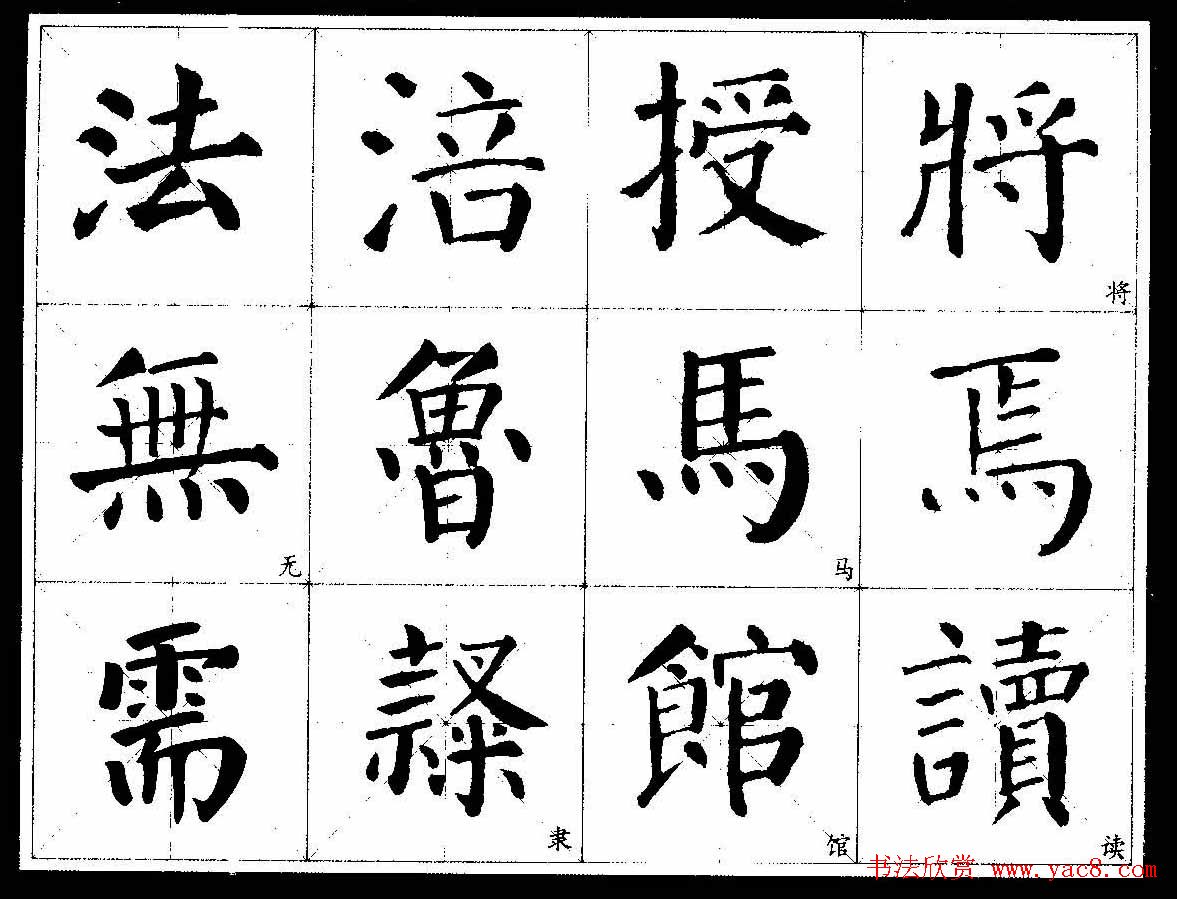 法 涪 授 將
将
無 魯 馬 焉
无 马
需 隸 館 讀
隶 馆 读
书法欣赏 www.yac8.com